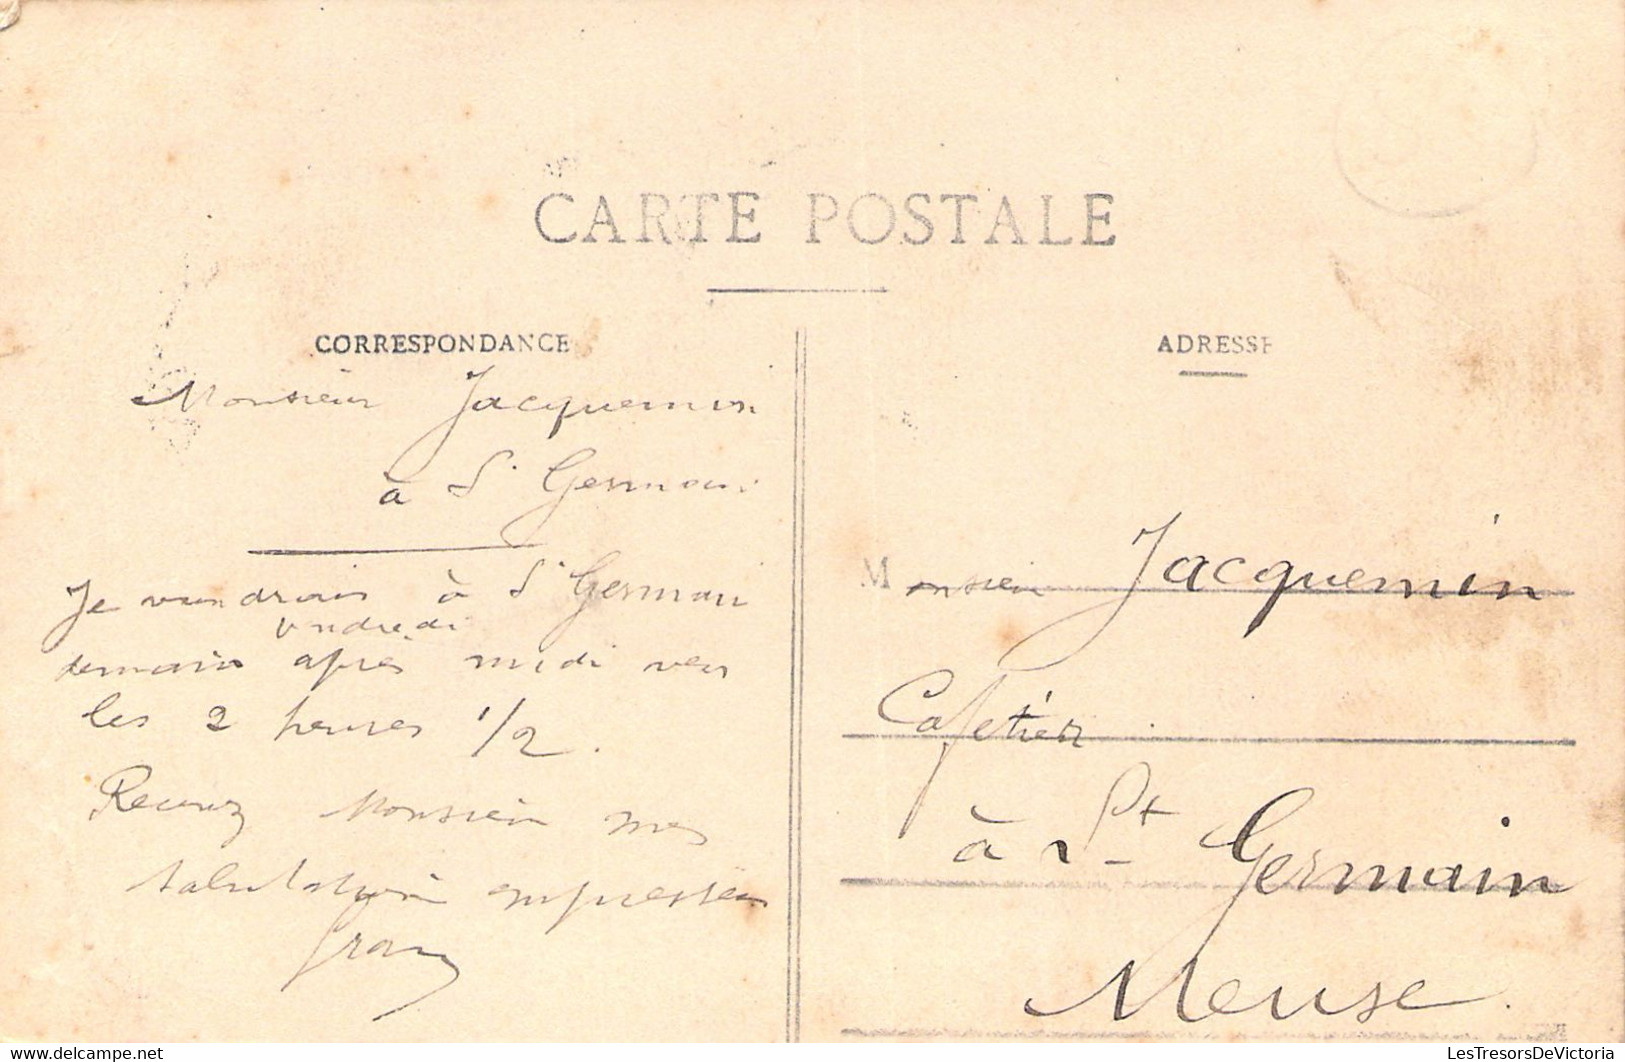 CARTE POSTALE
CORRESPONDANCE
Monsieur Jacquemin
à St Germain
Je viendrais à St Germain
vendredi
demain après midi vers
les 2 heures 1/2.
Recevez Monsieur mes
salutations empressées
ADRESSE
Monsieur Jacquemin
Cafetier
à St Germain
Meuse.
LesTresorsDeVictoria